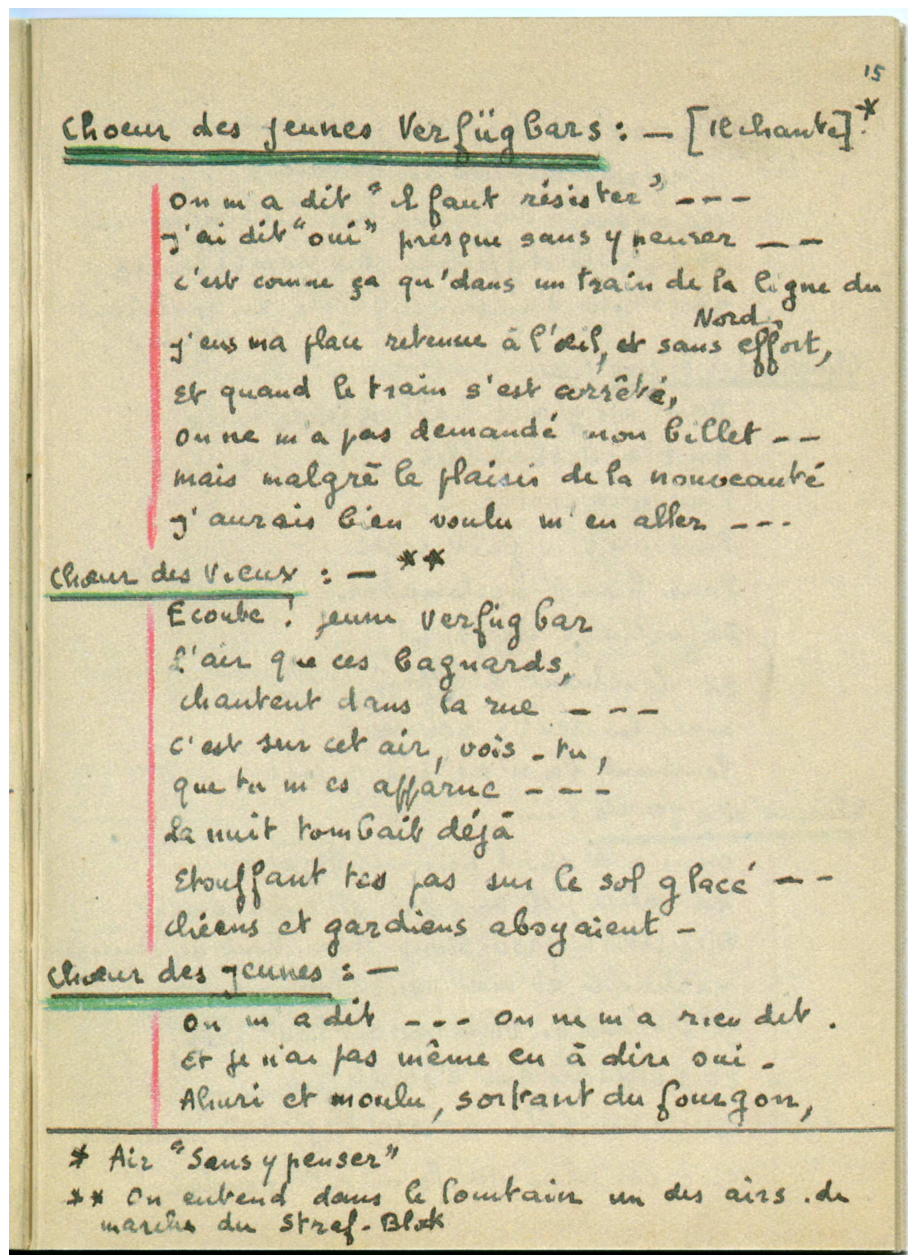 15
Choeur des jeunes Verfügbars : — [Il chante]*
On m'a dit "il faut résister" ---
J'ai dit "oui" presque sans y penser --
c'est comme ça qu'dans un train de la ligne du
Nord,
j'eus ma place retenue à l'œil, et sans effort,
Et quand le train s'est arrêté,
on ne m'a pas demandé mon billet --
mais malgré le plaisir de la nouveauté
J'aurais bien voulu m'en aller ---
Chœur des Vieux : — **
Ecoute ! jeune Verfügbar
L'air que ces bagnards,
chantent dans la rue ---
C'est sur cet air, vois-tu,
que tu m'es apparue ---
La nuit tombait déjà
Etouffant tes pas sur le sol glacé --
chiens et gardiens aboyaient -
Chœur des jeunes : —
On m'a dit --- on ne m'a rien dit .
Et je n'ai pas même eu à dire oui -
Ahuri et moulu, sortant du fourgon,
* Air "Sans y penser"
** On entend dans le lointain un des airs de
marche du Straf-Blok